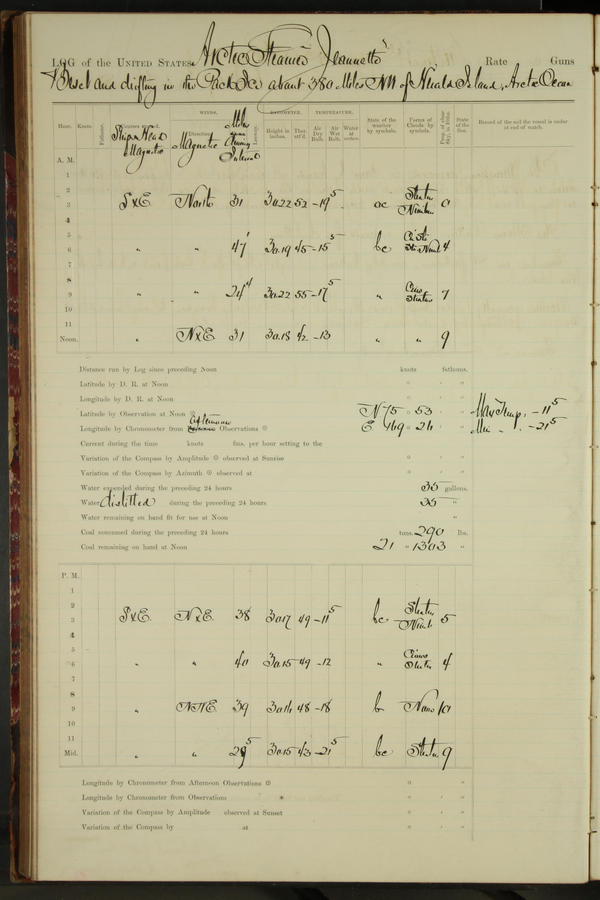 LOG of the UNITED STATES Arctic Steamer Jeannette Rate Guns
Beset and drifting in the Pack Ice about 380 Miles NW of Herald Island, Arctic Ocean
WINDS. BAROMETER. TEMPERATURE.
Hour. Knots. Fathoms. Courses steered. Ship's Head Magnetic Direction. Magnetic Miles during Interval Leeway. Height in inches. Ther. att'd. Air Dry Bulb. Air Wet Bulb. Water at surface. State of the weather by symbols. Forms of Clouds by symbols. Prop. of clear sky in 10ths. State of the Sea. Record of the sail the vessel is under at end of watch.
A. M.
1
2
3 SxE North 31 30.22 52 -19⁵ oc Stratus Nimbus 0
4
5
6 " " 47 30.19 45 -15⁵ bc 4
7
8
9 " " 24⁴ 30.22 55 -17⁵ " Cirro Stratus 7
10
11
Noon. " NxE 31 30.18 42 -13 " " 9
Distance run by Log since preceding Noon knots fathoms.
Latitude by D. R. at Noon ° ' "
Longitude by D. R. at Noon ° ' "
Latitude by Observation at Noon N 75 ° 53 Max Temp. -11⁵
Longitude by Chronometer from Afternoon Observations E 169 ° 26 Min " -21⁵
Current during the time knots fms. per hour setting to the
Variation of the Compass by Amplitude observed at Sunrise ° ' "
Variation of the Compass by Azimuth observed at ° ' "
Water expended during the preceding 24 hours 35 gallons.
Water distilled during the preceding 24 hours 35 "
Water remaining on hand fit for use at Noon "
Coal consumed during the preceding 24 hours tons. 290 lbs.
Coal remaining on hand at Noon 21 " 1303 "
P. M.
1
2
3 SxE. NxE. 38 30.17 49 -11⁵ bc Stratus Nimb. 5
4
5
6 " " 40 30.15 49 -12 " Cirro Stratus 4
7
8
9 " NNE. 39 30.16 48 -18 b None 10
10
11
Mid. " " 29⁵ 30.15 43 -21⁵ bc Stratus 9
Longitude by Chronometer from Afternoon Observations ° ' "
Longitude by Chronometer from Observations * ° ' "
Variation of the Compass by Amplitude observed at Sunset ° ' "
Variation of the Compass by at ° ' "